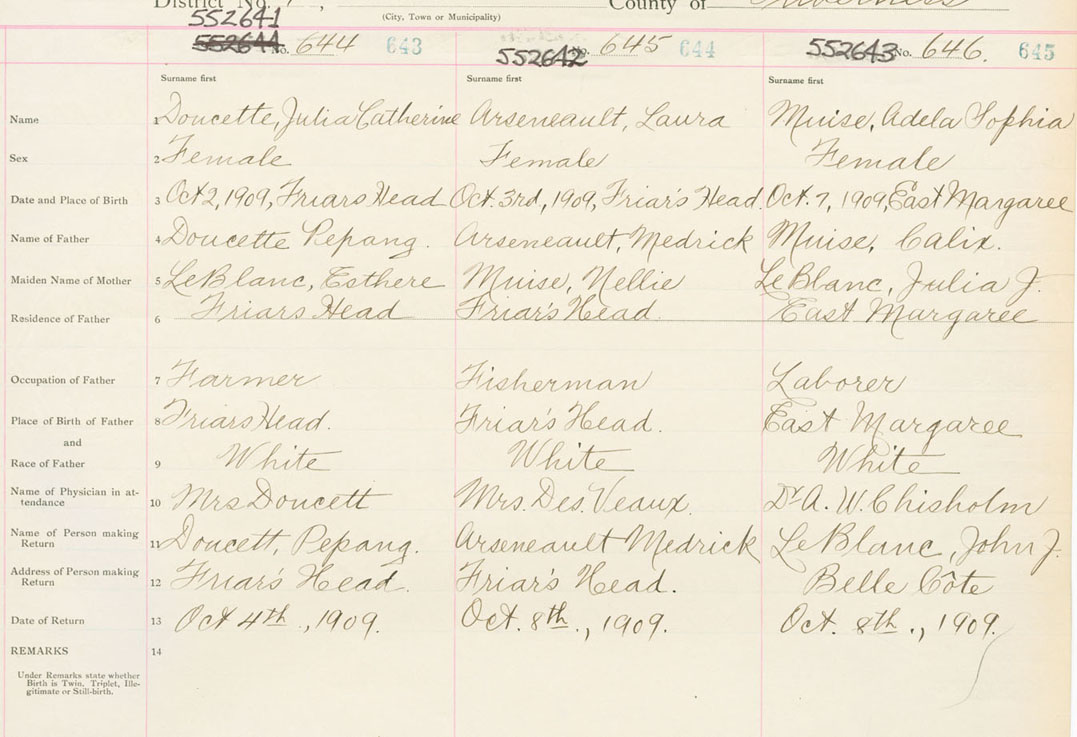 District No. County of Inverness
(City, Town or Municipality)
552641
552644 No. 644 643 552642 No. 645 644 552643 No. 646. 645
Surname first Surname first Surname first
Name 1 Doucette, Julia Catherine Arseneault, Laura Muise, Adela Sophia
Sex 2 Female Female Female
Date and Place of Birth 3 Oct 2, 1909, Friars Head Oct. 3rd, 1909, Friar's Head. Oct. 7, 1909, East Margaree
Name of Father 4 Doucette Pepang. Arseneault, Medrick Muise, Calix.
Maiden Name of Mother 5 LeBlanc, Esthere Muise, Nellie LeBlanc, Julia J.
Residence of Father 6 Friars Head Friar's Head. East Margaree
Occupation of Father 7 Farmer Fisherman Laborer
Place of Birth of Father 8 Friars Head. Friar's Head. East Margaree
and
Race of Father 9 White White White
Name of Physician in at-
tendance 10 Mrs Doucett Mrs. Des Veaux. Dr A. W. Chisholm
Name of Person making
Return 11 Doucett, Pepang. Arseneault Medrick LeBlanc, John J.
Address of Person making
Return 12 Friar's Head. Friar's Head. Belle Côte
Date of Return 13 Oct 4th., 1909. Oct. 8th., 1909. Oct. 8th., 1909.
REMARKS 14
Under Remarks state whether
Birth is Twin, Triplet, Ille-
gitimate or Still-birth.